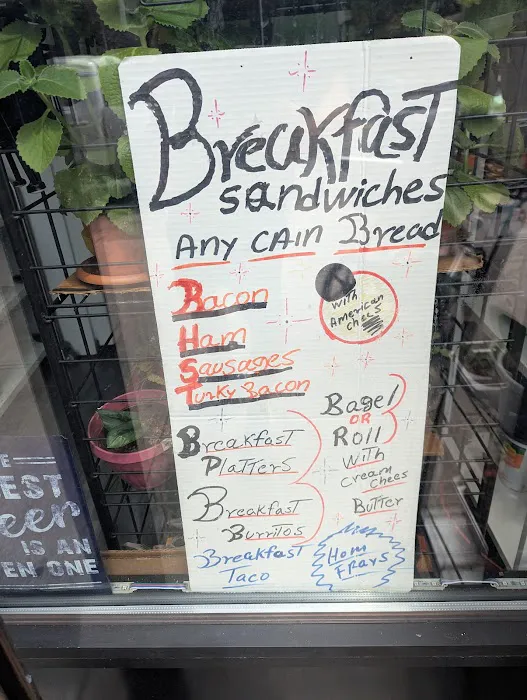 Breakfast
sandwiches
Any CAin Bread
Bacon
Ham
Sausages
Turky Bacon
with
American
chees
Breakfast
Platters
Breakfast
Burritos
Breakfast
Taco
Bagel
OR
Roll
with
cream chees
Butter
Hom
FRays
EST
eer
IS AN
EN ONE